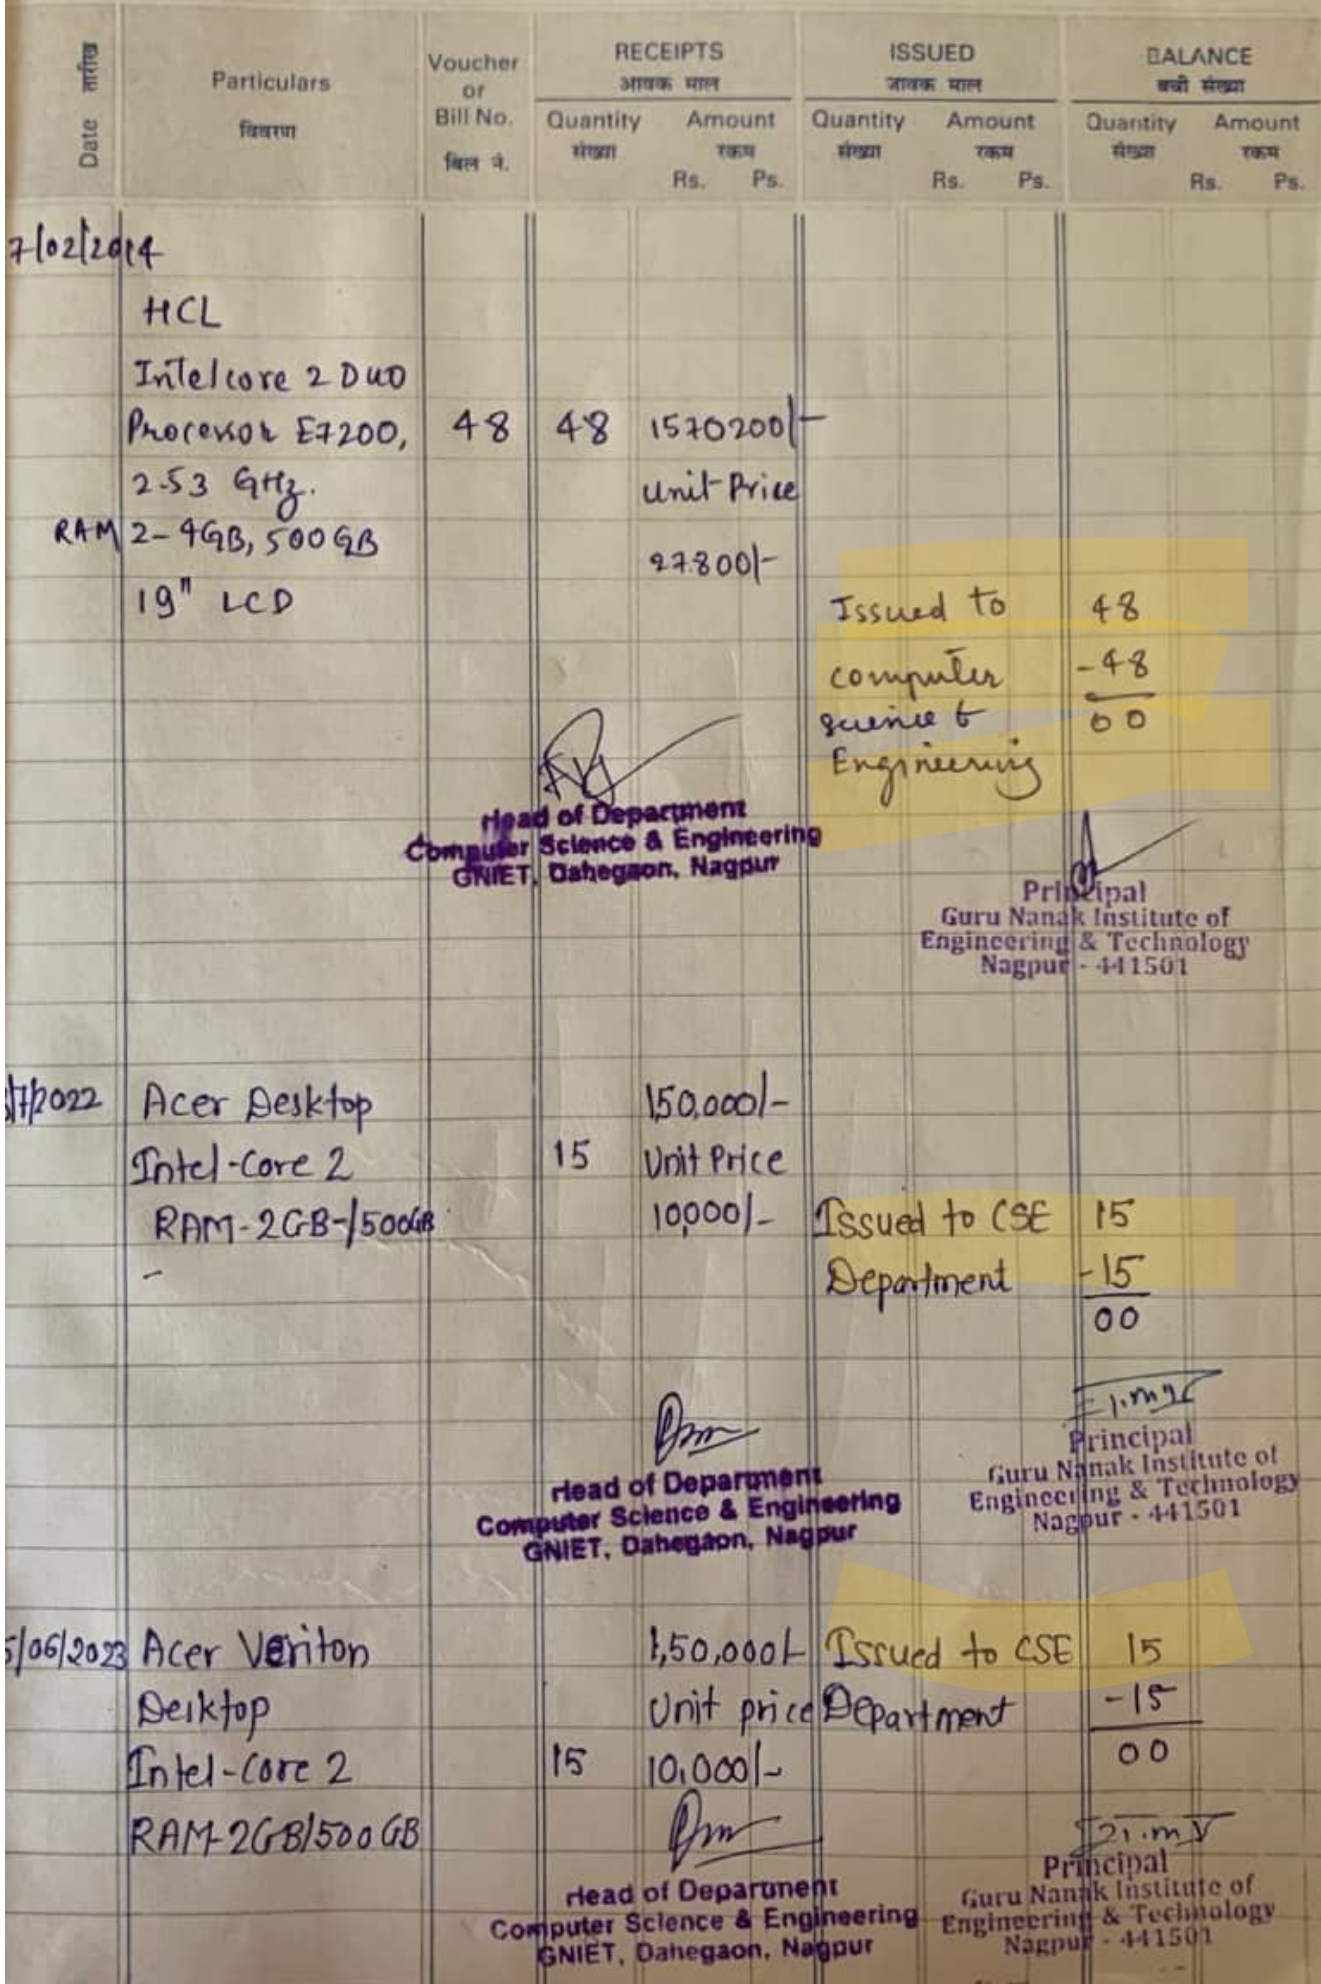 Date तारीख
Particulars
विवरण
Voucher
or
Bill No.
बिल नं.
RECEIPTS
आवक माल
Quantity
संख्या
Amount
रकम
Rs. Ps.
ISSUED
जावक माल
Quantity
संख्या
Amount
रकम
Rs. Ps.
BALANCE
बची संख्या
Quantity
संख्या
Amount
रकम
Rs. Ps.
7/02/2014
HCL
Intelcore 2 DUO
Processor E7200, 48 48 1570200/-
2.53 GHz. Unit Price
RAM 2-4GB, 500 GB 27800/-
19" LCD
Issued to 48
computer -48
science & 00
Engineering
Head of Department
Computer Science & Engineering
GNIET, Dahegaon, Nagpur
Principal
Guru Nanak Institute of
Engineering & Technology
Nagpur - 441501
/7/2022 Acer Desktop 150,000/-
Intel-Core 2 15 Unit Price
RAM-2GB-/500GB 10,000/- Issued to CSE 15
- Department -15
00
Head of Department
Computer Science & Engineering
GNIET, Dahegaon, Nagpur
Principal
Guru Nanak Institute of
Engineering & Technology
Nagpur - 441501
5/06/2023 Acer Veriton 1,50,000/- Issued to CSE 15
Desktop Unit price Department -15
Intel-Core 2 15 10,000/- 00
RAM-2GB/500GB
Head of Department
Computer Science & Engineering
GNIET, Dahegaon, Nagpur
Principal
Guru Nanak Institute of
Engineering & Technology
Nagpur - 441501